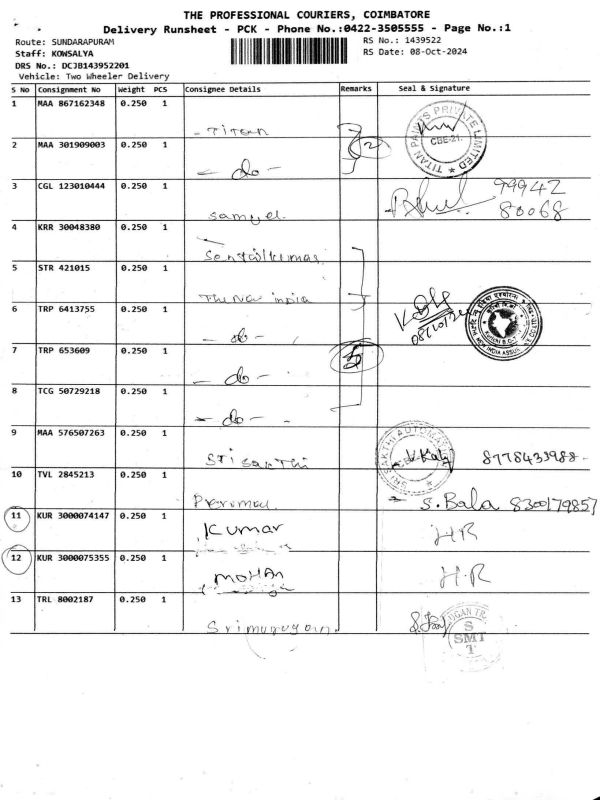 THE PROFESSIONAL COURIERS, COIMBATORE
Delivery Runsheet - PCK - Phone No.:0422-3505555 - Page No.:1
Route: SUNDARAPURAM
RS No.: 1439522
Staff: KOWSALYA
RS Date: 08-Oct-2024
DRS No.: DCJB143952201
Vehicle: Two Wheeler Delivery
S No Consignment No Weight PCS Consignee Details Remarks Seal & Signature
1 MAA 867162348 0.250 1
- Titan
2
TITAN PAINTS PRIVATE LIMITED
CBE-21.
2 MAA 301909003 0.250 1
- do -
3 CGL 123010444 0.250 1
Samuel
99942
80068
4 KRR 30048380 0.250 1
Senthilkumar
5 STR 421015 0.250 1
The New India
6 TRP 6413755 0.250 1
- do -
08/10/24
7 TRP 653609 0.250 1
- do -
8 TCG 50729218 0.250 1
- do -
9 MAA 576507263 0.250 1
Sri Sakthi
8778433988-
10 TVL 2845213 0.250 1
Perumal
S. Bala 8300179857
11 KUR 3000074147 0.250 1
Kumar
HR
12 KUR 3000075355 0.250 1
MOHAN
H.R
13 TRL 8002187 0.250 1
Srimurugan
S
SMT
T